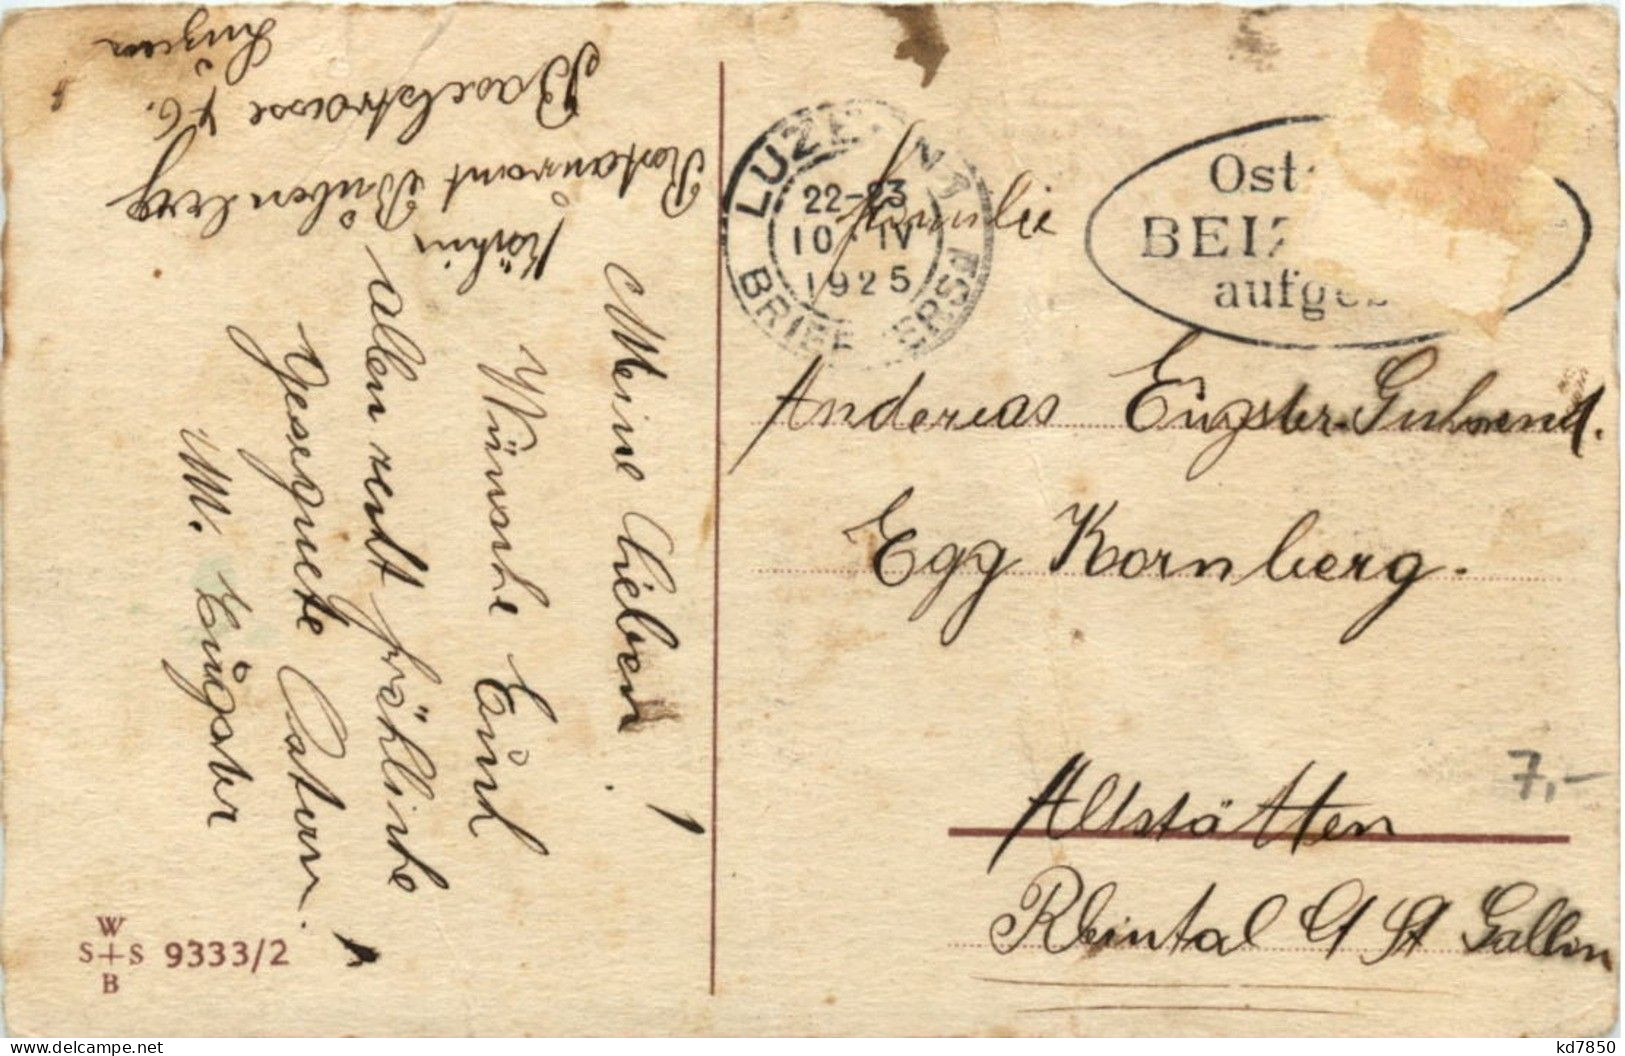 Meine Lieben!
Wünsche Euch
allen recht fröhliche
gesegnete Ostern.
M. Eugster
Köchin
Restaurant Bubenberg
Baselstrasse 76.
Luzern
LUZERN 1
22-23
10 IV
1925
BRIEFVERSAND
Ost
BEI
aufge
Familie
Andereas Eugster
Egg Kornberg.
Altstätten
Rheintal Ct St Gallen
7,-
W
S+S 9333/2
B
kd7850
delcampe.net